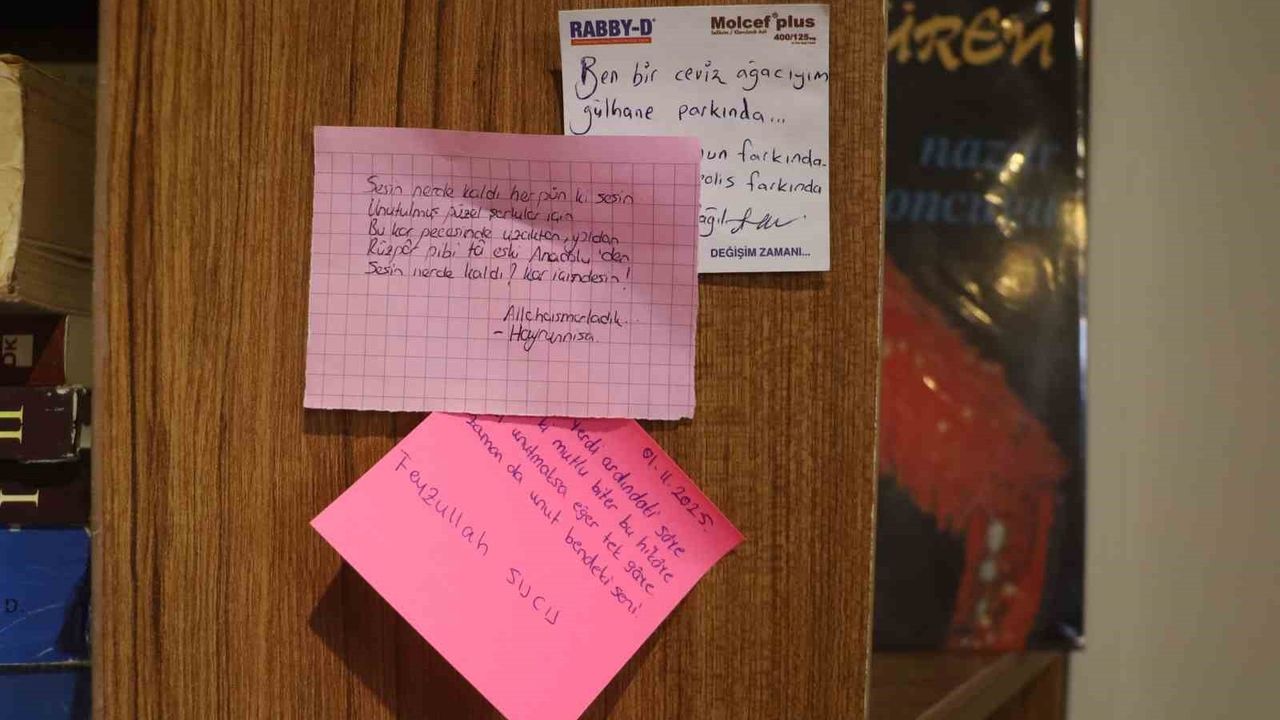 RABBY-D
Molcef plus
400/125mg
Ben bir ceviz ağacıyım
gülhane parkında...
un farkında
polis farkında
ağıl
DEĞİŞİM ZAMANI...
Sesin nerde kaldı her gün ki sesin
Unutulmuş güzel şarkılar için
Bu kar gecesinde uzaktan, yoldan
Rüzgâr gibi tâ eski Anadolu'dan
Sesin nerde kaldı? kar içindesin!
Allahaısmarladık...
- Hayrunnisa
01.11.2025
verdi ardındaki
ki mutlu biter bu hikâye
unutmaksa eğer tek gâye
zaman da unut bendeki seni.
Feyzullah
SUCU
ÜREN
nazar
boncuğu
DK
II
I
D.